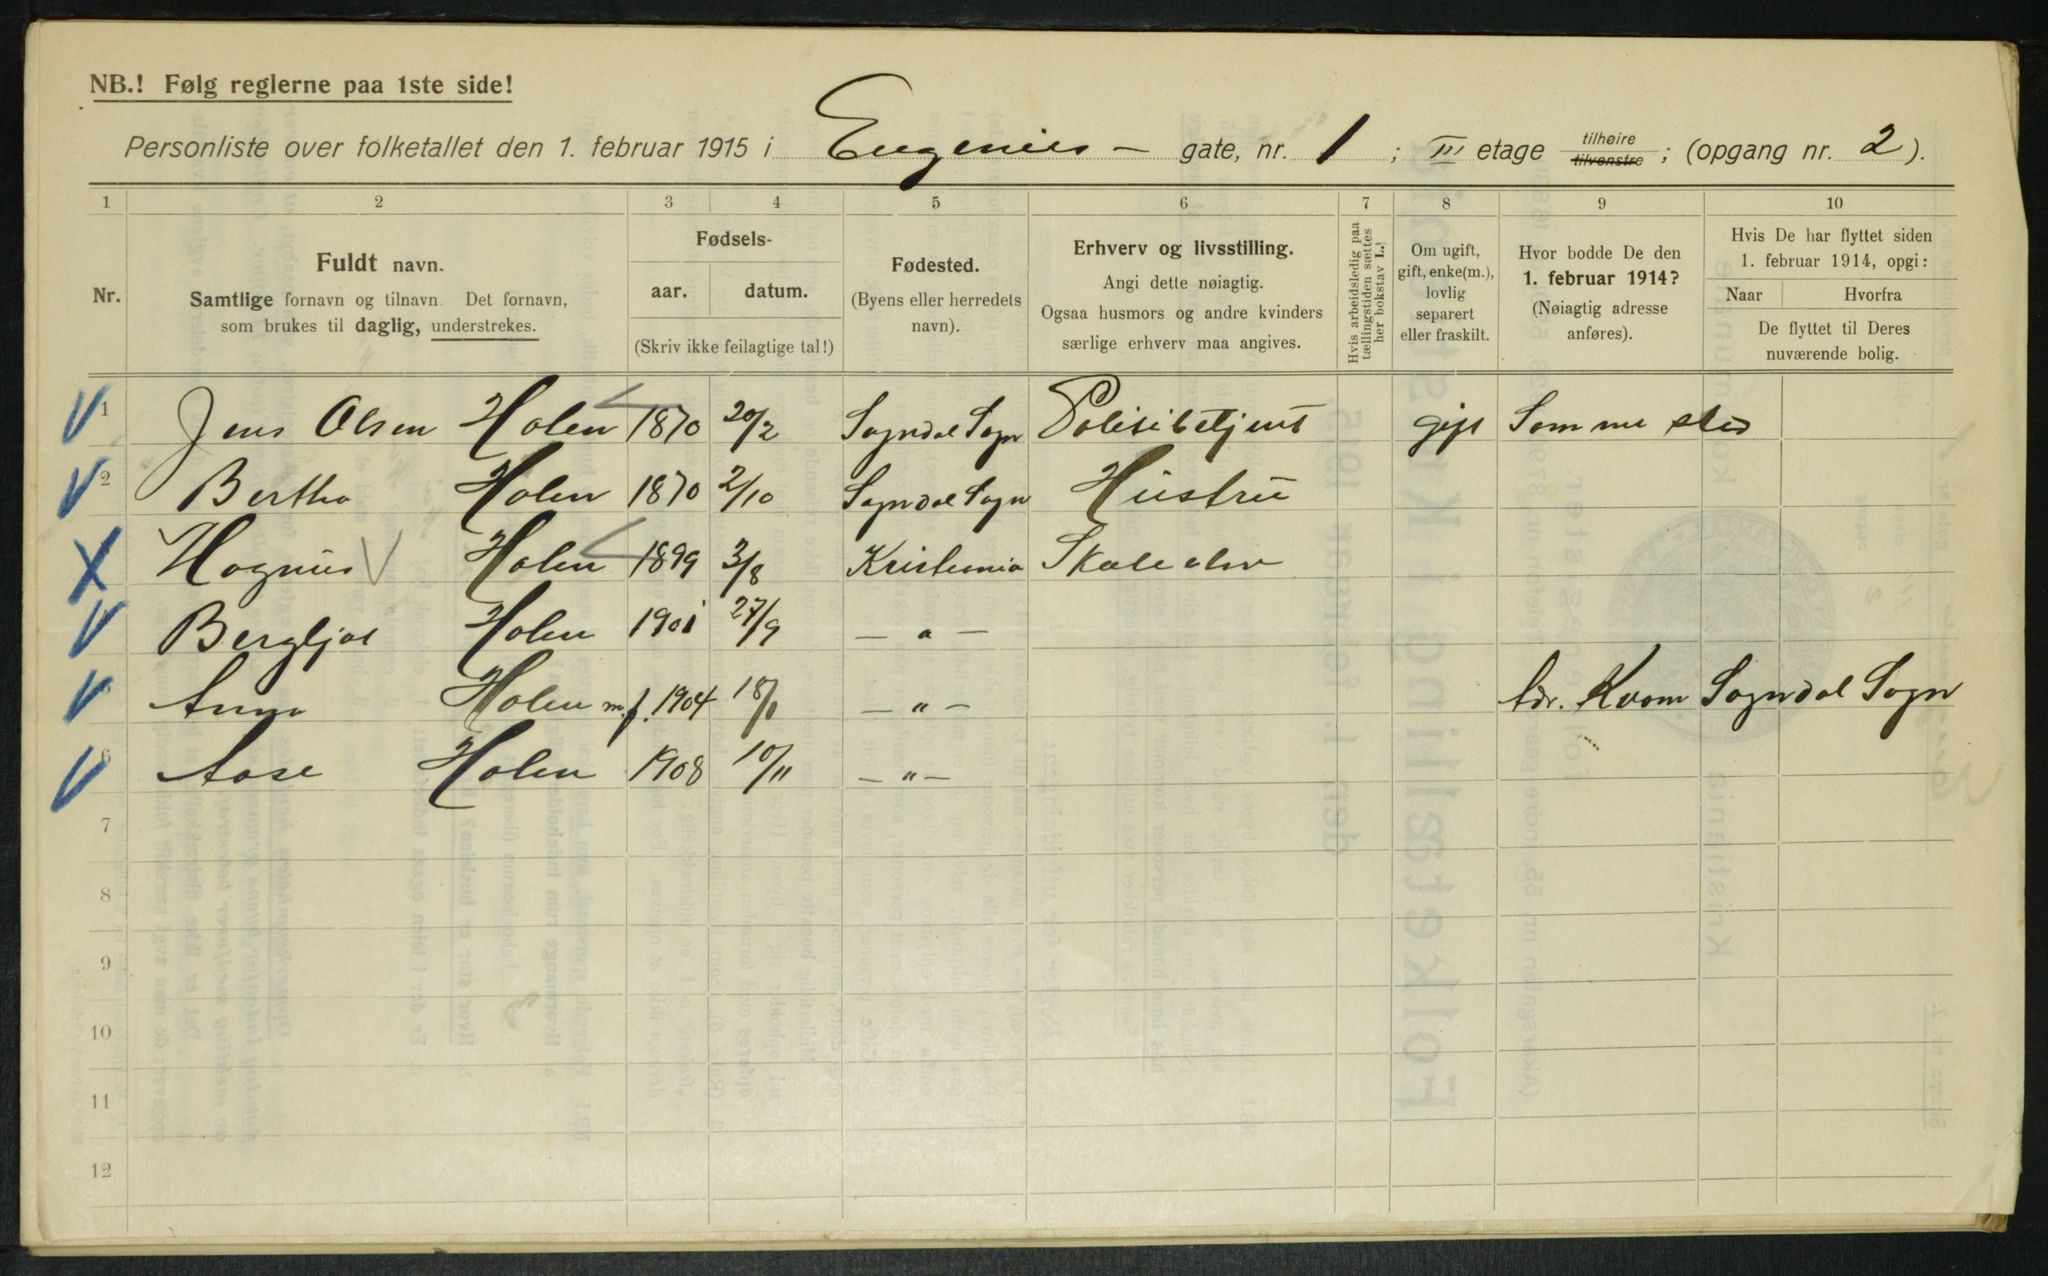 NB.! Følg reglerne paa 1ste side!
Personliste over folketallet den 1. februar 1915 i Eugenies - gate, nr. 1 ; III etage tilhøire tilvenstre ; (opgang nr. 2 ).
1 2 3 4 5 6 7 8 9 10
Nr.
Fuldt navn.
Samtlige fornavn og tilnavn. Det fornavn,
som brukes til daglig, understrekes.
Fødsels-
aar. datum.
(Skriv ikke feilagtige tal!)
Fødested.
(Byens eller herredets
navn).
Erhverv og livsstilling.
Angi dette nøiagtig.
Ogsaa husmors og andre kvinders
særlige erhverv maa angives.
Hvis arbeidsledig paa
tællingstiden sættes
her bokstav L.
Om ugift,
gift, enke(m.),
lovlig
separert
eller fraskilt.
Hvor bodde De den
1. februar 1914?
(Nøiagtig adresse
anføres).
Hvis De har flyttet siden
1. februar 1914, opgi:
Naar Hvorfra
De flyttet til Deres
nuværende bolig.
1 Jens Olsen Holen 1870 20/2 Sogndal Sogn Polisibetjent gift Samme sted
2 Bertha Holen 1870 2/10 Sogndal Sogn Hustru
Magnus Holen 1899 3/8 Kristiania Skoleelev
Bergljot Holen 1901 27/9 — " —
Anna Holen m.f. 1904 18/1 — " — Adr. Kvam Sogndal Sogn
6 Aase Holen 1908 10/11 — " —
7
8
9
10
11
12